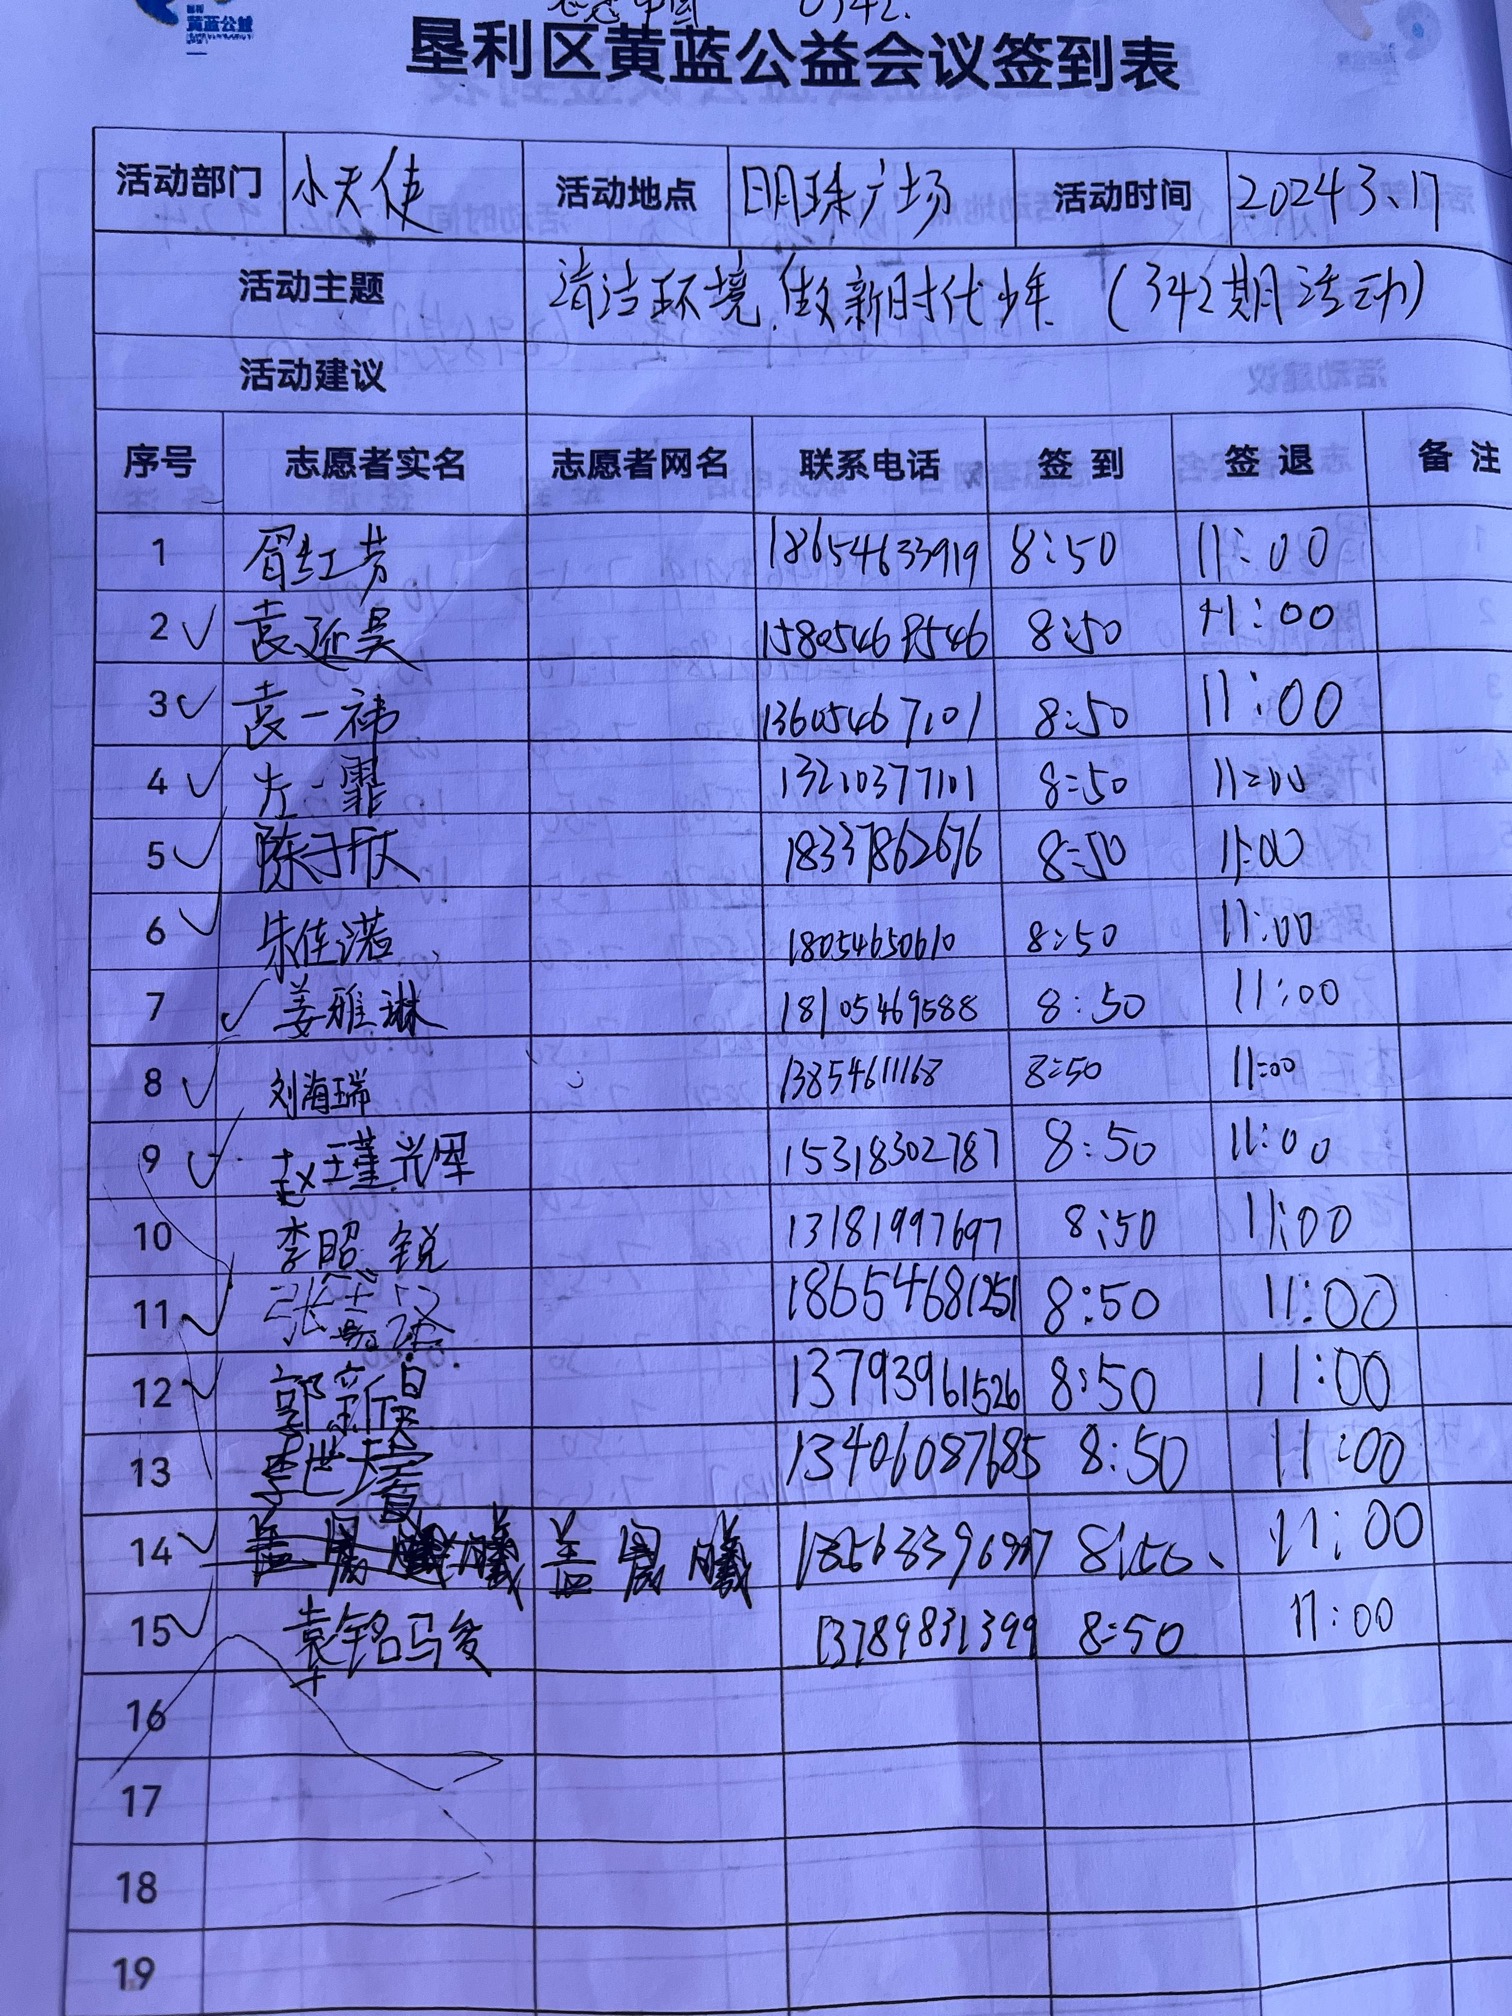 黄蓝公益
志愿中国 0342.
垦利区黄蓝公益会议签到表
活动部门 小天使 活动地点 明珠广场 活动时间 2024 3、17
活动主题 清洁环境.做新时代少年 (342期活动)
活动建议
序号 志愿者实名 志愿者网名 联系电话 签到 签退 备注
1 胥红芳 18654633919 8:50 11:00
2 袁延昊 15805468546 8:50 11:00
3 袁一祎 13605467101 8:50 11:00
4 左一霏 13210377101 8:50 11:00
5 陈于欣 18337862676 8:50 11:00
6 朱佳诺 18054650610 8:50 11:00
7 姜雅琳 18105469588 8:50 11:00
8 刘海瑞 13854611168 8:50 11:00
9 赵瑾光군 15318302787 8:50 11:00
10 李昭锐 13181997697 8:50 11:00
11 张嘉 18654681251 8:50 11:00
12 郭新昊 13793961526 8:50 11:00
13 李世 13406087685 8:50 11:00
14 盖晨曦 8:50 11:00
15 袁铭骏 13789831399 8:50 11:00
16
17
18
19